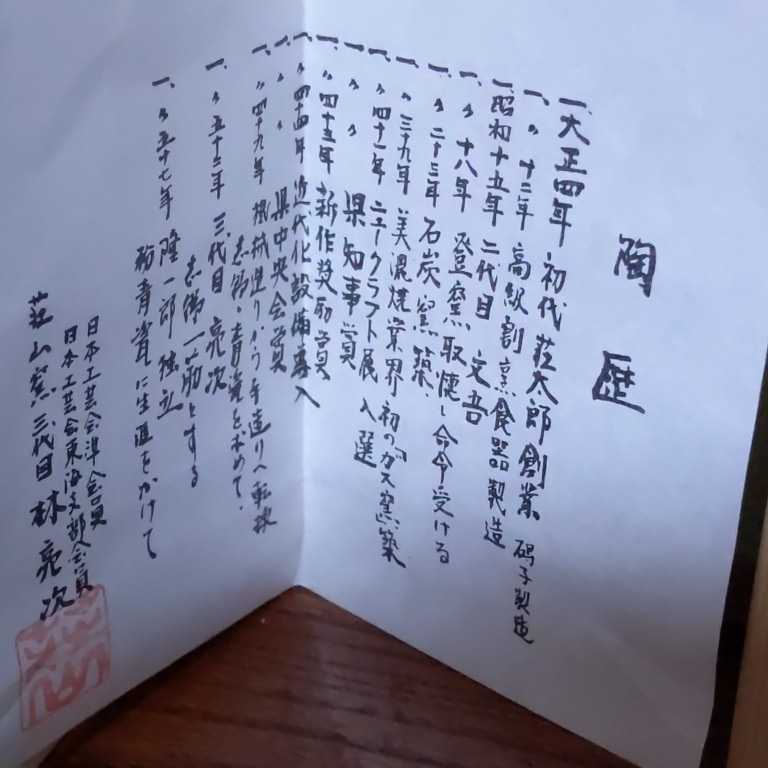 陶歴
一、大正四年 初代 荘太郎創業 碍子製造
一、〃 十二年 高級割烹食器製造
一、昭和十五年 二代目 文吾
一、〃 十八年 登窯取懐し命令受ける
一、〃 二十三年 石炭窯築
一、〃 三十九年 美濃焼業界初の「ガス窯」築
一、〃 四十一年 ニュークラフト展 入選
一、〃 〃 県知事賞
一、〃 四十三年 新作奨励賞
一、〃 四十四年 近代化設備導入
一、〃 〃 県中央会賞
一、〃 四十九年 機械造りから手造りへ転換
志野、青瓷を求めて
一、〃 五十三年 三代目 亮次
志野一筋とする
一、〃 五十七年 隆一郎 独立
青瓷に生涯をかけて
日本工芸会準会員
日本工芸会東海支部会員
荘山窯三代目 林 亮次